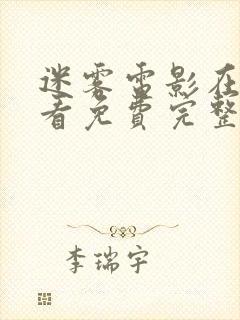 迷雾雷影在
看免费完整
李瑞宇